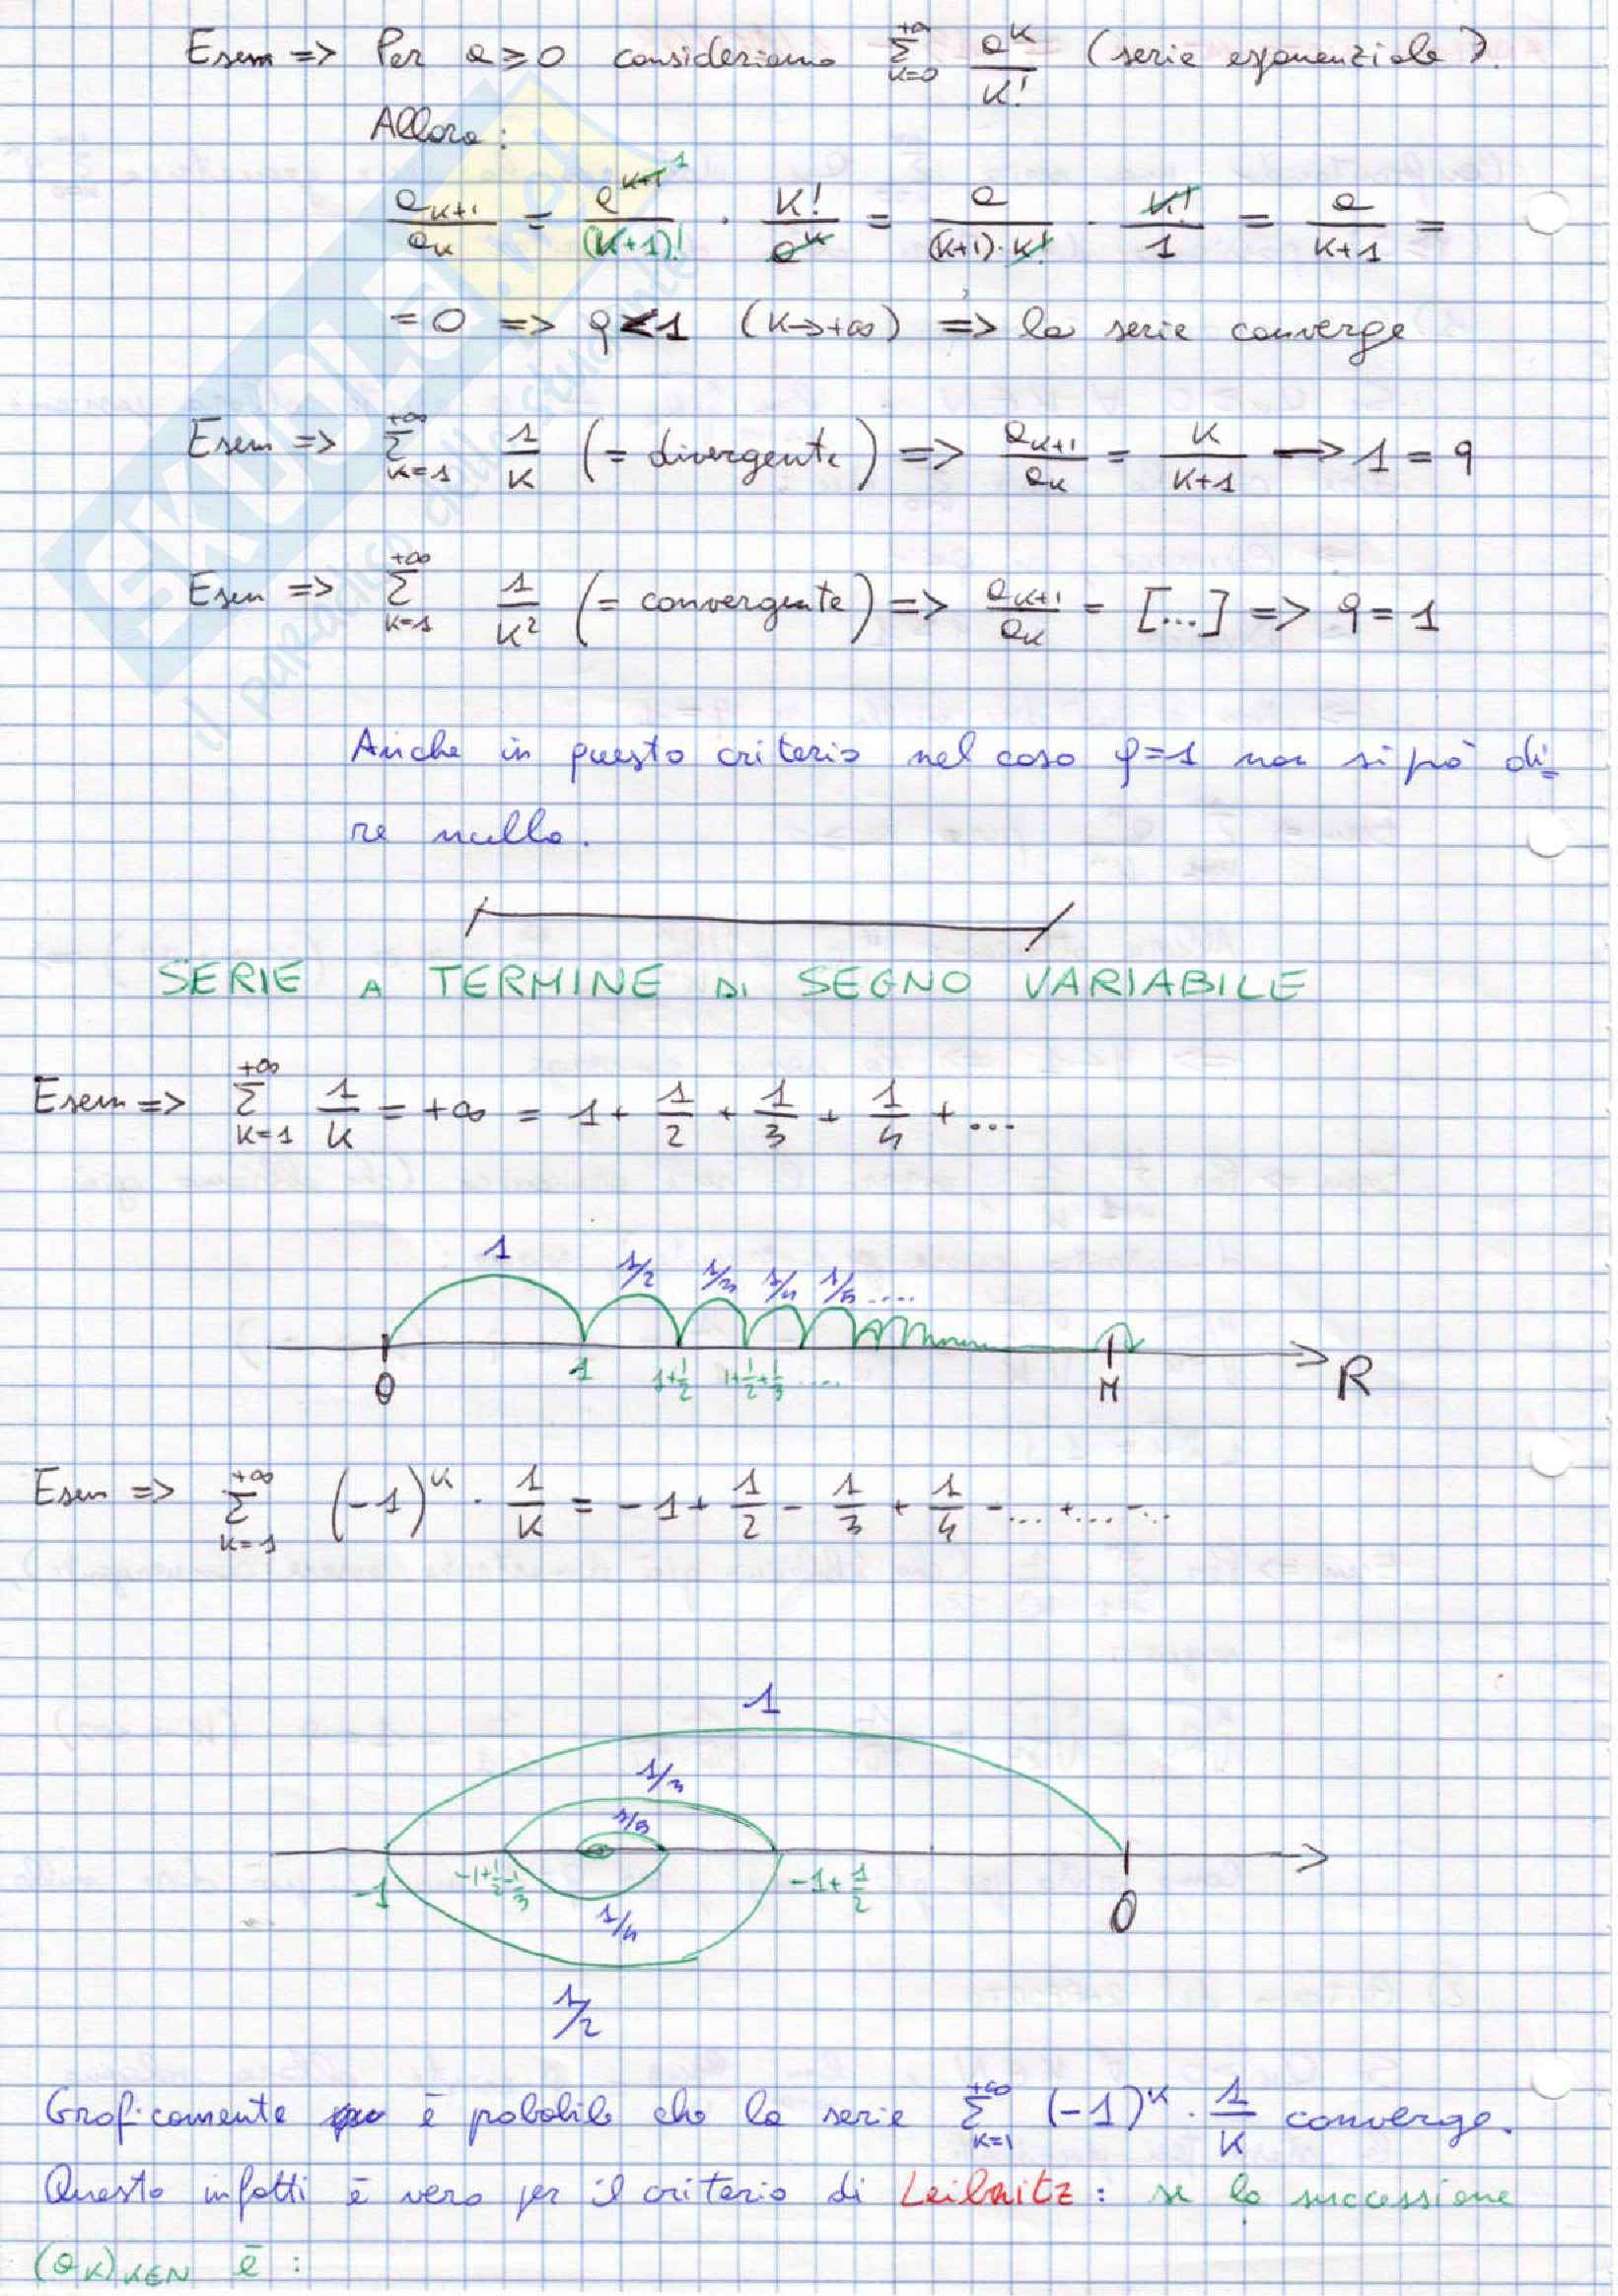 Esem => Per a ≥ 0 consideriamo \sum_{k=0}^{+∞} \frac{a^k}{k!} (serie esponenziale).
Allora:
\frac{a_{k+1}}{a_k} = \frac{a^{k+1}}{(k+1)!} · \frac{k!}{a^k} = \frac{a}{(k+1)·k!} · \frac{k!}{1} = \frac{a}{k+1} =
= 0 => q<1 (k→+∞) => la serie converge
Esem => \sum_{k=1}^{+∞} \frac{1}{k} (= divergente) => \frac{a_{k+1}}{a_k} = \frac{k}{k+1} → 1 = q
Esem => \sum_{k=1}^{+∞} \frac{1}{k^2} (= convergente) => \frac{a_{k+1}}{a_k} = [...] => q = 1
Anche in questo criterio nel caso q=1 non si pò di=
re nulla.
SERIE A TERMINE DI SEGNO VARIABILE
Esem => \sum_{k=1}^{+∞} \frac{1}{k} = +∞ = 1 + \frac{1}{2} + \frac{1}{3} + \frac{1}{4} + ...
1 1/2 1/3 1/4 1/5 ....
0 1 1+\frac{1}{2} 1+\frac{1}{2}+\frac{1}{3} .... M R
Esem => \sum_{k=1}^{+∞} (-1)^k · \frac{1}{k} = -1 + \frac{1}{2} - \frac{1}{3} + \frac{1}{4} -...+...-...
1
1/3
1/5
-1 -1+\frac{1}{2}-\frac{1}{3} -1+\frac{1}{2} 0
1/4
1/2
Graficamente è probabile che la serie \sum_{k=1}^{+∞} (-1)^k · \frac{1}{k} converge.
Questo infatti è vero per il criterio di Leibnitz: se la successione
(a_k)_{k∈N} è:
EKUOLA.NOL
il paradiso dello studente